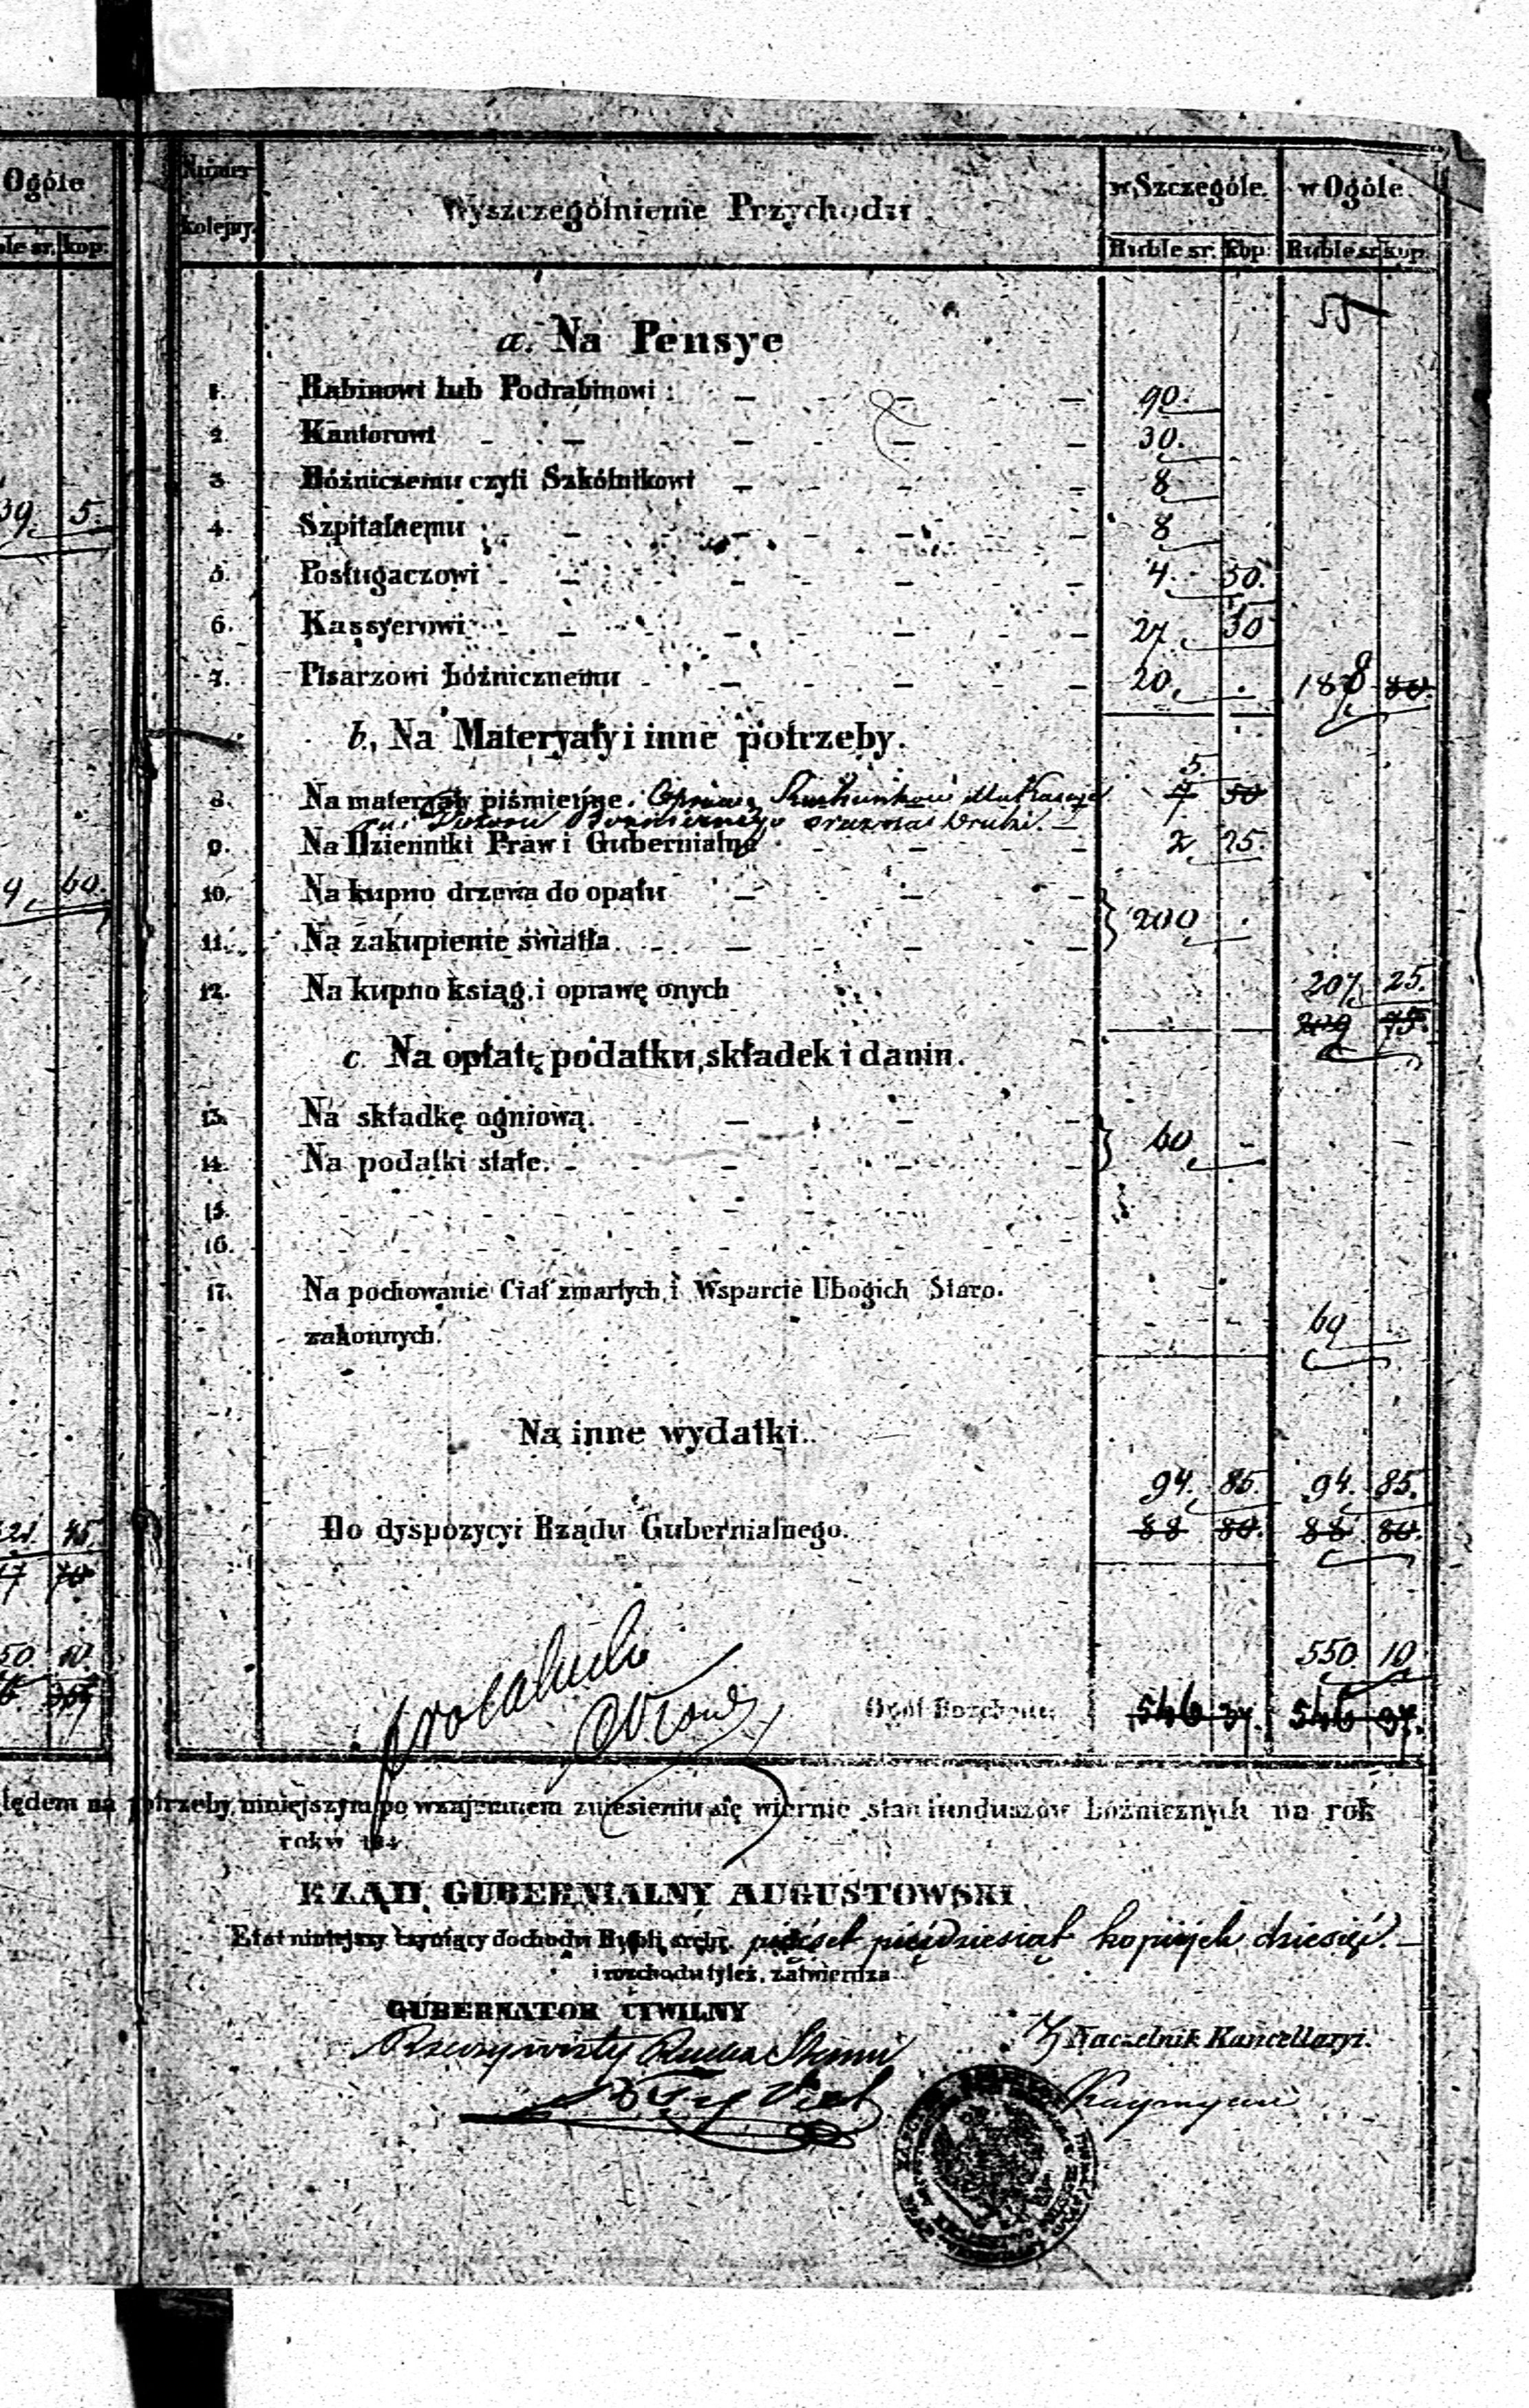 Ogóle
ble sr. kop:
39. 5.
9. 60.
21. 45.
50. 10.
Numer kolejny.
Wyszczególnienie Przychodu
w Szczególe. w Ogóle
Ruble sr. kop: Ruble sr. kop.
55
a. Na Pensye
1. Rabinowi lub Podrabinowi : 90.
2. Kantorowi 30.
3. Bóźniczemu czyli Szkólnikowi 8
4. Szpitalnemu 8
5. Posługaczowi 4. 50.
6. Kassyerowi 27. 50
7. Pisarzowi bóżnicznemu 20. 188 80.
b. Na Materyały i inne potrzeby.
5.
8. Na materyały piśmienne. 7 50
oraz na Druki.
9. Na Dzienniki Praw i Gubernialne 2 25.
10. Na kupno drzewa do opału
200
11. Na zakupienie światła
12. Na kupno ksiąg i oprawę onych 207. 25.
209 75.
c. Na opłatę podatku, składek i danin.
13. Na składkę ogniową.
60
14. Na podatki stałe.
15.
16.
17. Na pochowanie Ciał zmarłych i Wsparcie Ubogich Staro.
zakonnych. 60
Na inne wydatki.
94. 85. 94. 85.
Do dyspozycyi Rządu Gubernialnego. 88 80. 88 80.
550. 10
Ogół Rozchodu 546 37. 546 37.
lędem na potrzeby niniejszym po wzajemnem zniesieniu się wiernie stan funduszów bóżnicznych na rok
rokw 184
RZĄD GUBERNIALNY AUGUSTOWSKI
Etat niniejszy czyniący dochodu Rubli srebr. pięćset pięćdziesiąt kopijek dziesięć.
i rozchodu tyleż, zatwierdza
GUBERNATOR CYWILNY
Rzeczywisty Radca Stanu
Naczelnik Kancellaryi.